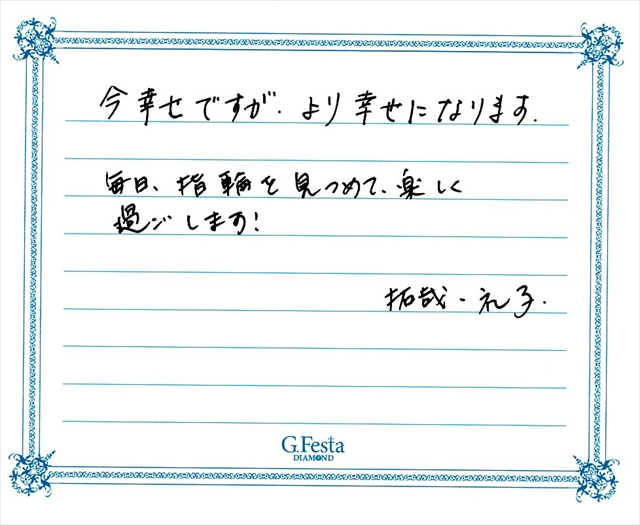 今幸せですが、より幸せになります.
毎日、指輪を見つめて、楽しく
過ごします!
拓哉・礼子.
G.Festa
DIAMOND